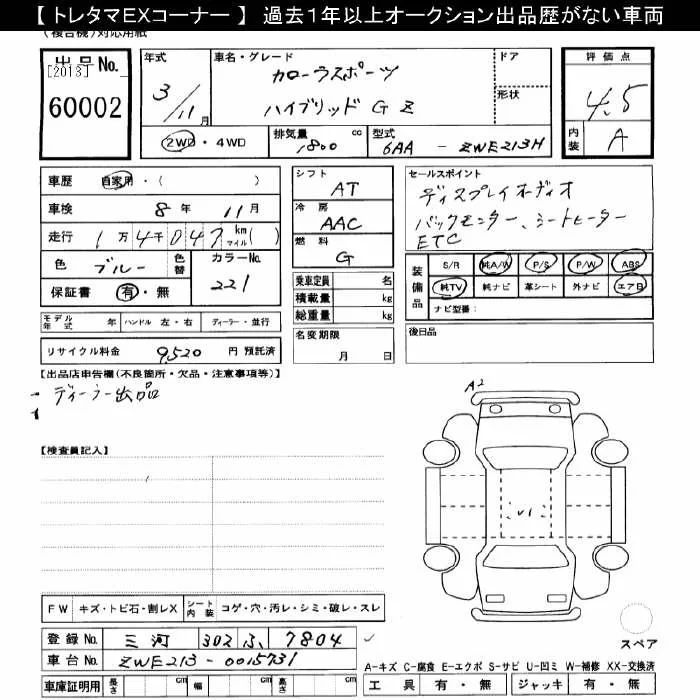 【 トレタマEXコーナー 】 過去1年以上オークション出品歴がない車両
(複合機)対応用紙
出品No. [2013] 60002
年式 3/11月
車名・グレード カローラスポーツ ハイブリッド G Z
ドア
形状
評価点 4.5
内装 A
2WD・4WD
排気量 1800 cc
型式 6AA - ZWE213H
車歴 自家用・( )
車検 8年 11月
走行 1万4千047 km マイル( )
色 ブルー 色替
カラーNo. 221
保証書 有・無
シフト AT
冷房 AAC
燃料 G
乗車定員 名
積載量 kg
総重量 kg
名変期限 月 日
セールスポイント
ディスプレイオーディオ
バックモニター、シートヒーター
ETC
装備品 S/R 純A/W P/S P/W ABS
純TV 純ナビ 革シート 外ナビ エアB
ナビ型番:
後日品
モデル年式 年 ハンドル 左・右 ディーラー・並行
リサイクル料金 9,520 円 預託済
【出品店申告欄(不良箇所・欠品・注意事項等)】
ディーラー出品
【検査員記入】
A2
U1
FW キズ・トビ石・割レX シート内装 コゲ・穴・汚レ・シミ・破レ・スレ
登録No. 三河 302 ふ 7804
車台No. ZWE213-0015731
車庫証明用 長さ cm 幅 cm 高さ cm
スペア
A-キズ C-腐食 E-エクボ S-サビ U-凹ミ W-補修 XX-交換済
工具 有・無 ジャッキ 有・無